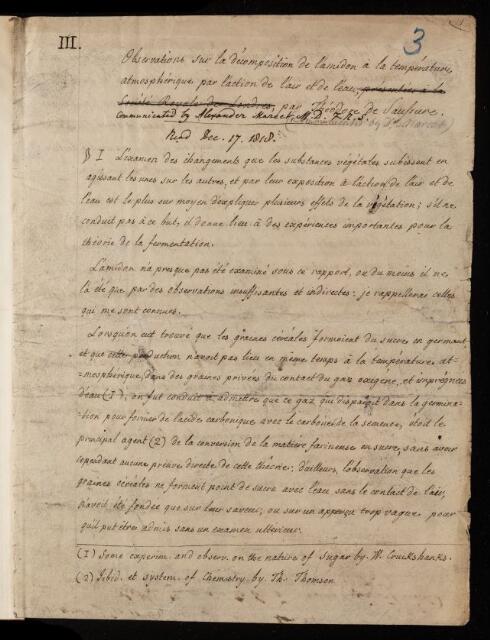 III.
3
Observations sur la décomposition de l'amidon à la température
atmosphérique par l'action de l'air et de l'eau, presentées à la
Société Royale de Londres, par Théodore de Saussure.
Communicated by Alexander Marcet, M.D. F.R.S.
(Communicated by Dr. Marcet)
Read Dec. 17. 1818.
§ I L'examen des changemens que les substances végétales subissent en
agissant les unes sur les autres, et par leur exposition à l'action de l'air et de
l'eau est le plus sur moyen d'expliquer plusieurs effets de la végétation; s'il ne
conduit pas à ce but, il donne lieu à des expériences importantes pour la
théorie de la fermentation.
L'amidon n'a presque pas été examiné sous ce rapport, ou du moins il ne
l'a été que par des observations insuffisantes et indirectes: je rappellerai celles
qui me sont connues.
Lorsqu'on eut trouvé que les graines céréales formoient du sucre en germant
et que cette production n'avoit pas lieu en même temps à la température at-
=mosphérique, dans des graines privées du contact du gaz oxigène, et imprégnées
d'eau (1), on fut conduit à admettre que ce gaz qui disparoit dans la germina-
=tion pour former de l'acide carbonique avec le carbone de la semence, étoit le
principal agent (2) de la conversion de la matière farineuse en sucre, sans avoir
cependant aucune preuve directe de cette théorie; d'ailleurs, l'observation que les
graines céréales ne forment point de sucre avec l'eau sans le contact de l'air,
n'avoit été fondée que sur leur saveur, ou sur un apperçu trop vague pour
qu'il put être admis sans un examen ultérieur.
(1) Some experim. and observ. on the nature of Sugar by W. Cruikshanks.
(2) Ibid. et system of Chemistry by Th. Thomson